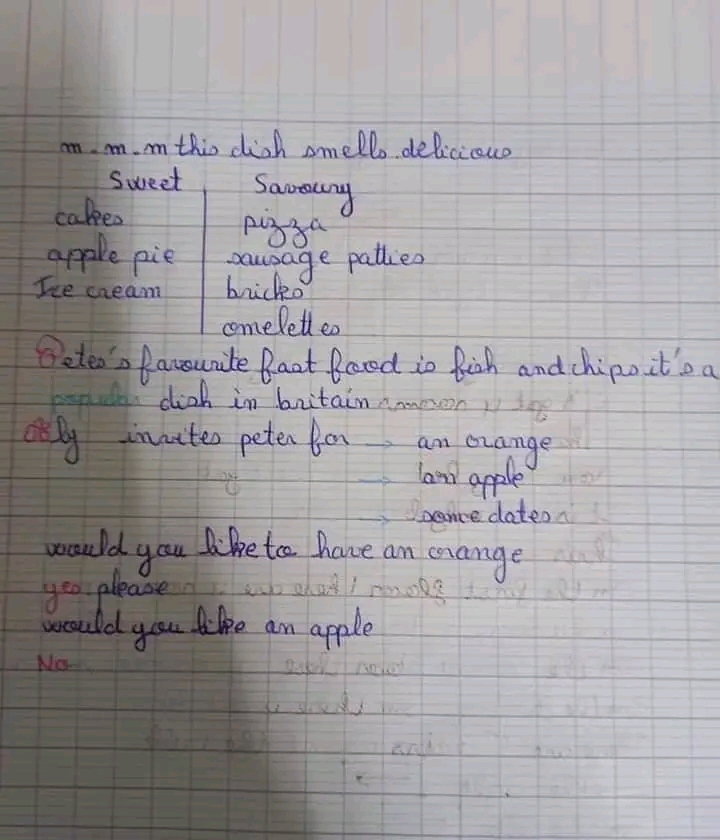 m.m.m this dish smells delicious
Sweet Savoury
cakes pizza
apple pie sausage patties
Ice cream bricks
omelettes
Peter's favourite fast food is fish and chips it's a
popular dish in britain
invites peter for → an orange
→ an apple
→ some dates
would you like to have an orange
yes please
would you like an apple
No